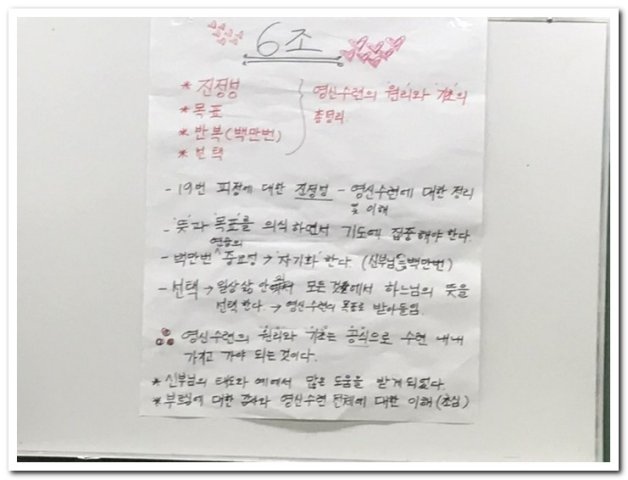 6조
* 진정성
* 목표
* 반복(백만번)
* 선택
영신수련의 '원리와 기초'의
총정리.
- 19번 피정에 대한 진정성 - 영신수련에 대한 정리
및 이해
- '뜻'과 '목표'를 의식하면서 기도에 집중해야 한다.
연습의
- 백만번 중요성 → 자기화 한다. (신부님 백만번)
- 선택 → 일상 삶 안에서 모든 에서 하느님의 뜻을
선택한다. → 영신수련의 목표로 받아들임.
영신수련의 원리와 기초는 공식으로 수련 내내
가지고 가야 되는것이다.
* 신부님의 태도와 예에서 많은 도움을 받게되었다.
* 부르심에 대한 감사와 영신수련 전체에 대한 이해 (초심)